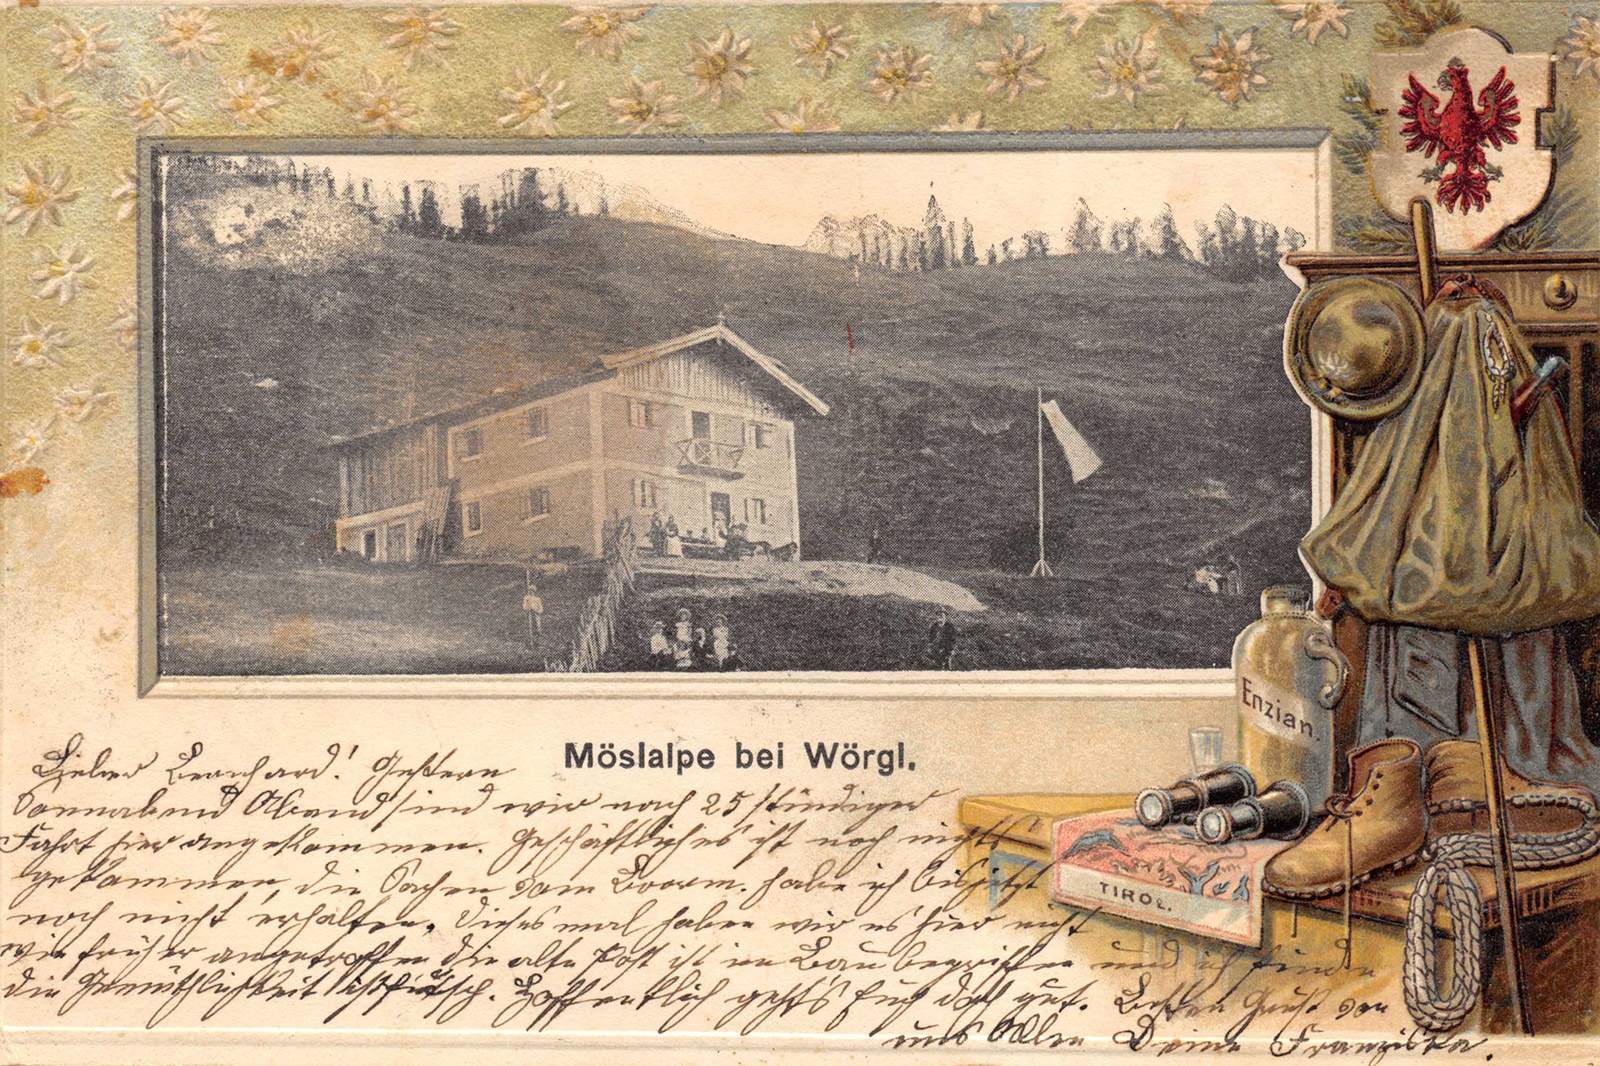 Enzian.
Möslalpe bei Wörgl.
TIROL.
Lieber Bernhard! Gestern
Sonnabend Abend sind wir nach 25 stündiger
Fahrt hier angekommen. Geschäftliches ist noch nichts
gekommen, die Sachen vom habe ich bis jetzt
noch nicht erhalten. Dieses mal haben wir es hier nicht
wie früher angetroffen die alte Post ist im Bau begriffen und ich finde
die Gemüthlichkeit ist futsch. Hoffentlich geht's Euch dort gut. Besten Gruß von
uns Allen Deine Franziska.